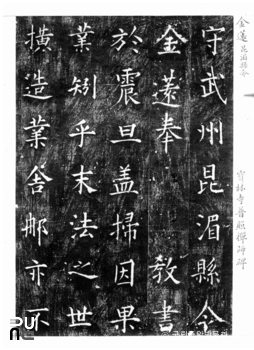 金薳 昆湄縣令
寶林寺普照禪師碑
守武州昆湄縣令
金薳奉 教書
於震旦盖掃因果
業矧乎末法之世
撗造業舍郍亦不